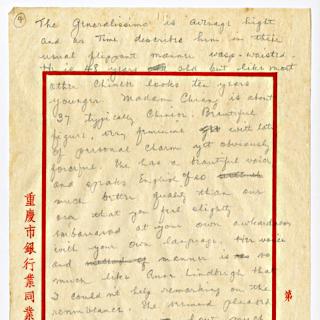 4
The Generalissimo is average hight
and as Time described him in their
usual flippant manner wasp-waisted.
He is 48 years old but like most
other Chinese looks ten years
younger. Madam Chiang is about
37 typically Chinese. Beautiful
figure, very feminine with lots
of personal charm yet obviously
forceful. She has a beautiful voice
and speaks English of so
much better quality than our
own that you feel slightly
embarrassed at your own awkwardness
with your own language. Her voice
and manner is so
much like Anne Lindbergh that
I couldn't help remarking on the
resemblance. She seemed pleased
how much
重慶市銀行業同業
第